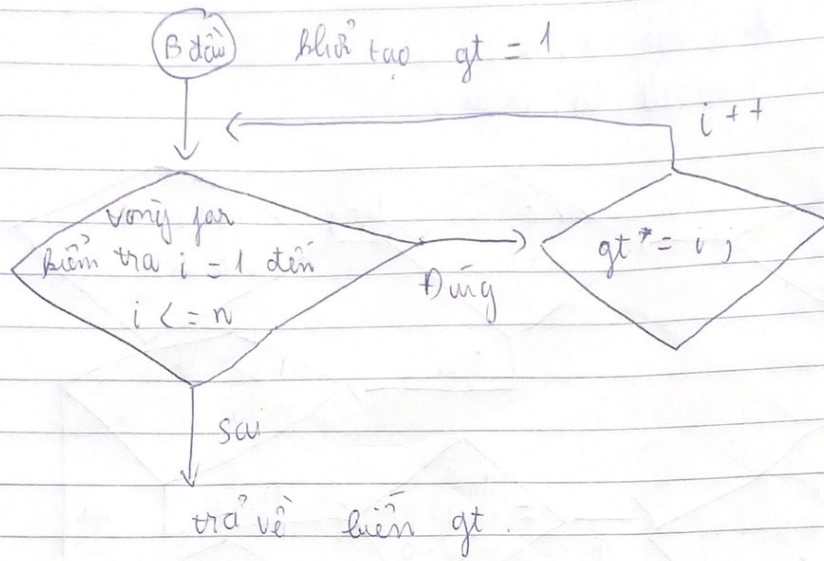 B đầu
khởi tạo gt = 1
i++
vòng for
kiểm tra i = 1 đến
i <= n
Đúng
gt *= i ;
sai
trả về biến gt.